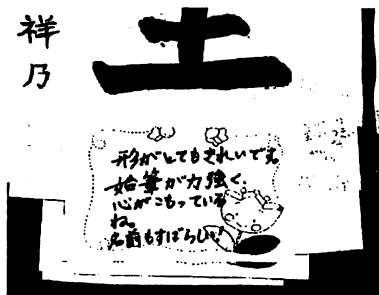 土
祥乃
形がとてもきれいです。
始筆が力強く、
心がこもっている
ね。
名前もすばらしい!